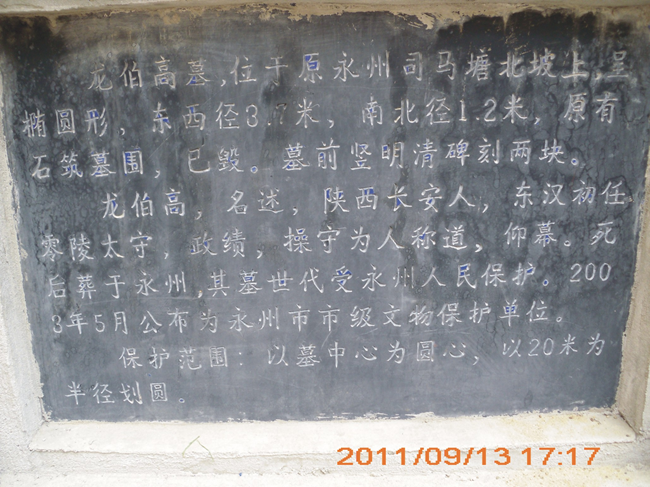 龙伯高墓,位于原永州司马塘北坡上,呈
椭圆形,东西径3.7米,南北径1.2米,原有
石筑墓围,已毁。墓前竖明清碑刻两块。
龙伯高,名述,陕西长安人,东汉初任
零陵太守,政绩,操守为人称道,仰慕。死
后葬于永州,其墓世代受永州人民保护。200
3年5月公布为永州市市级文物保护单位。
保护范围:以墓中心为圆心,以20米为
半径划圆。
2011/09/13 17:17